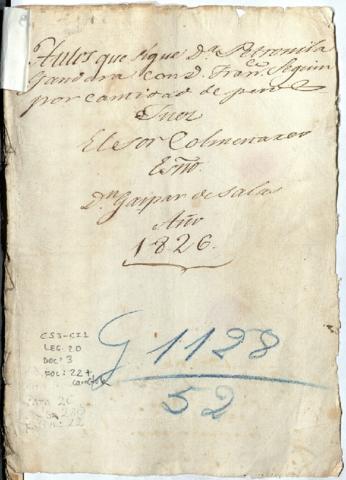 Autos que sigue Dª Petronila
Gandara con D. Franco. Seguin
por cantidad de pesos
Juez
El Sor Colmenares
Esno.
Dn. Gaspar de Salas
Año
1826.
CS3-CI1
LEG. 20
DOC: 3
FOL: 22+
caratula
G 1128
52